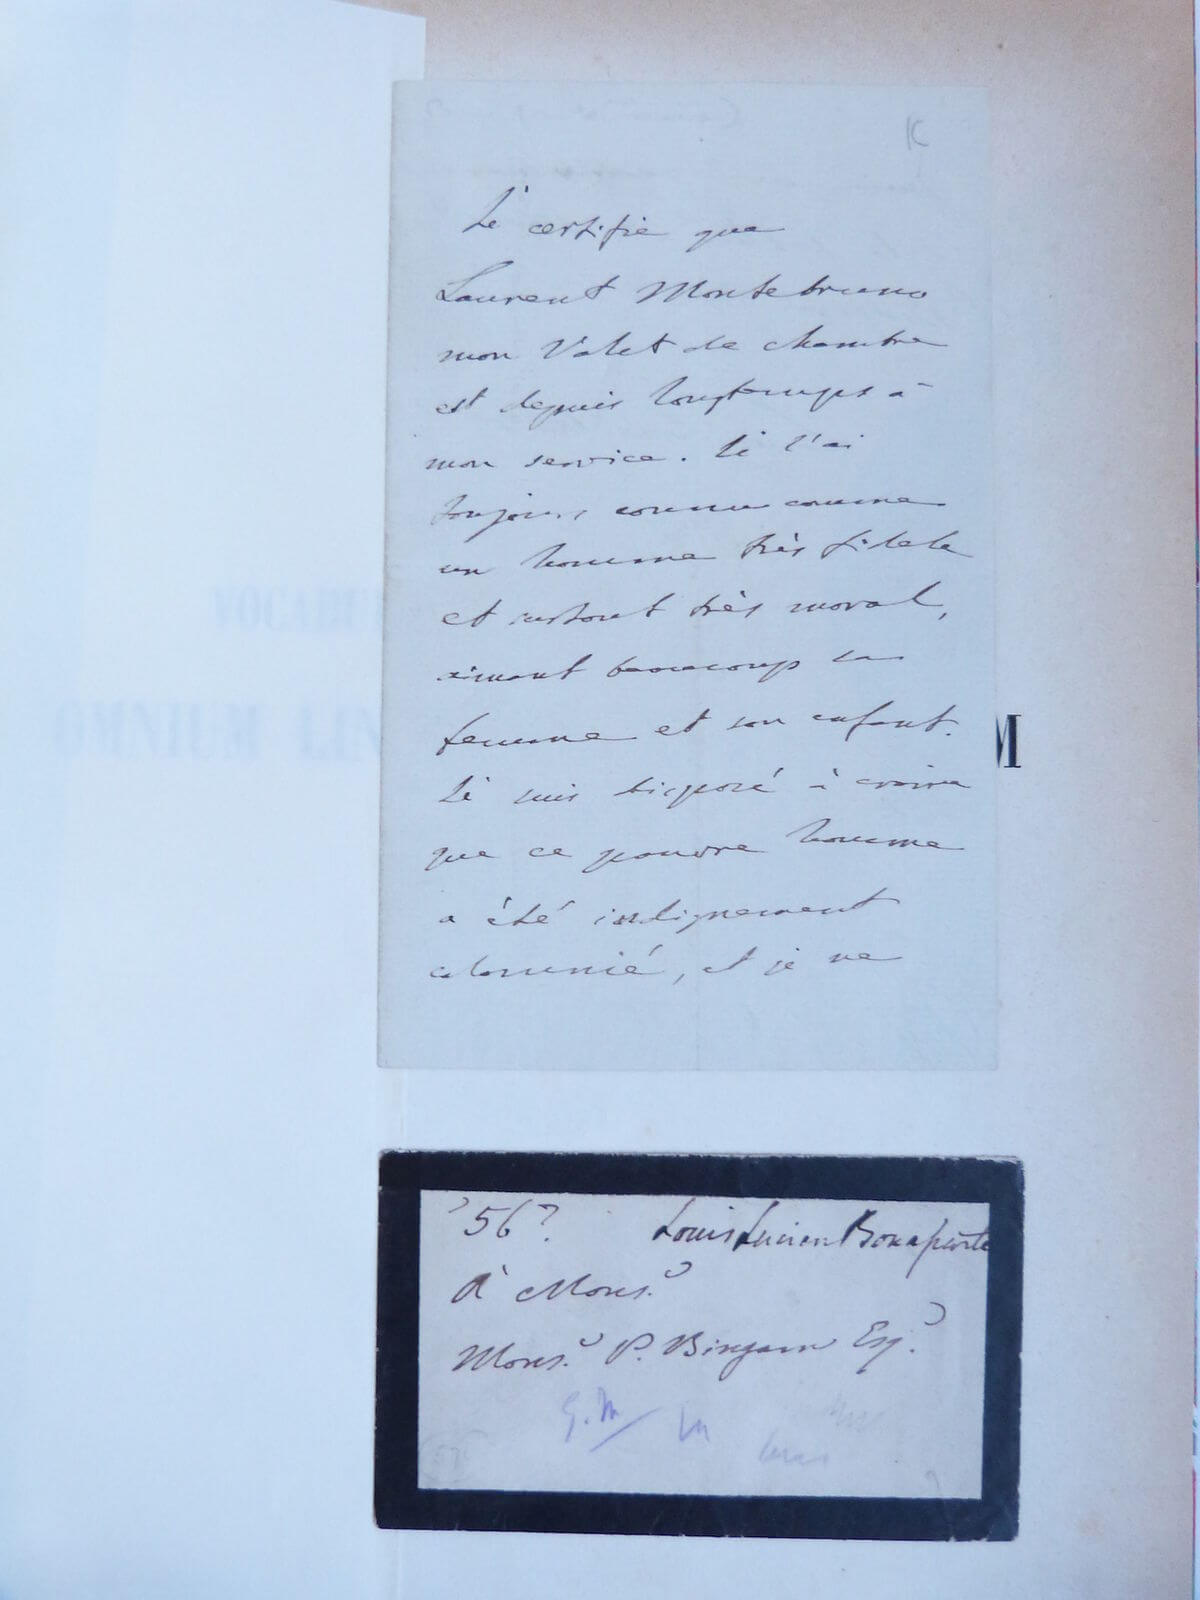 Je certifie que
Laurent Montebruno
mon Valet de chambre
est depuis longtemps à
mon service. Je l'ai
toujours connu comme
un homme très fidele
et surtout très moral,
aimant beaucoup sa
femme et son enfant.
Je suis disposé à croire
que ce pauvre homme
a été indignement
calomnié, et je ne
VOCABU
OMNIUM LIN
M
'56? Louis Lucien Bonaparte
A Monsr
Monsr P. Bingam Esqr
G.M